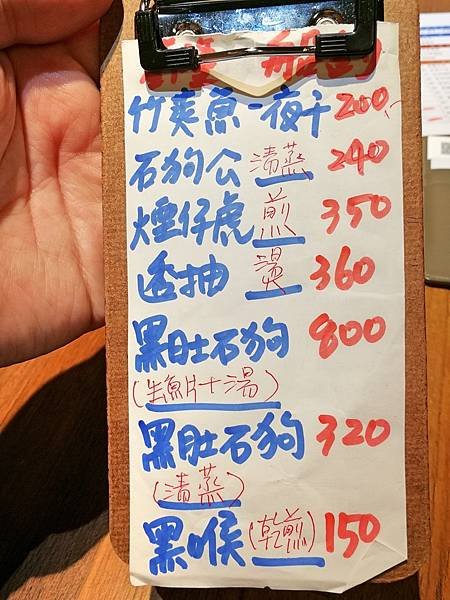 竹莢魚一夜干 200
石狗公 清蒸 240
煙仔虎 煎 350
透抽 燙 360
黑肚石狗 800
(生魚片+湯)
黑肚石狗 320
(清蒸)
黑喉 (乾煎) 150